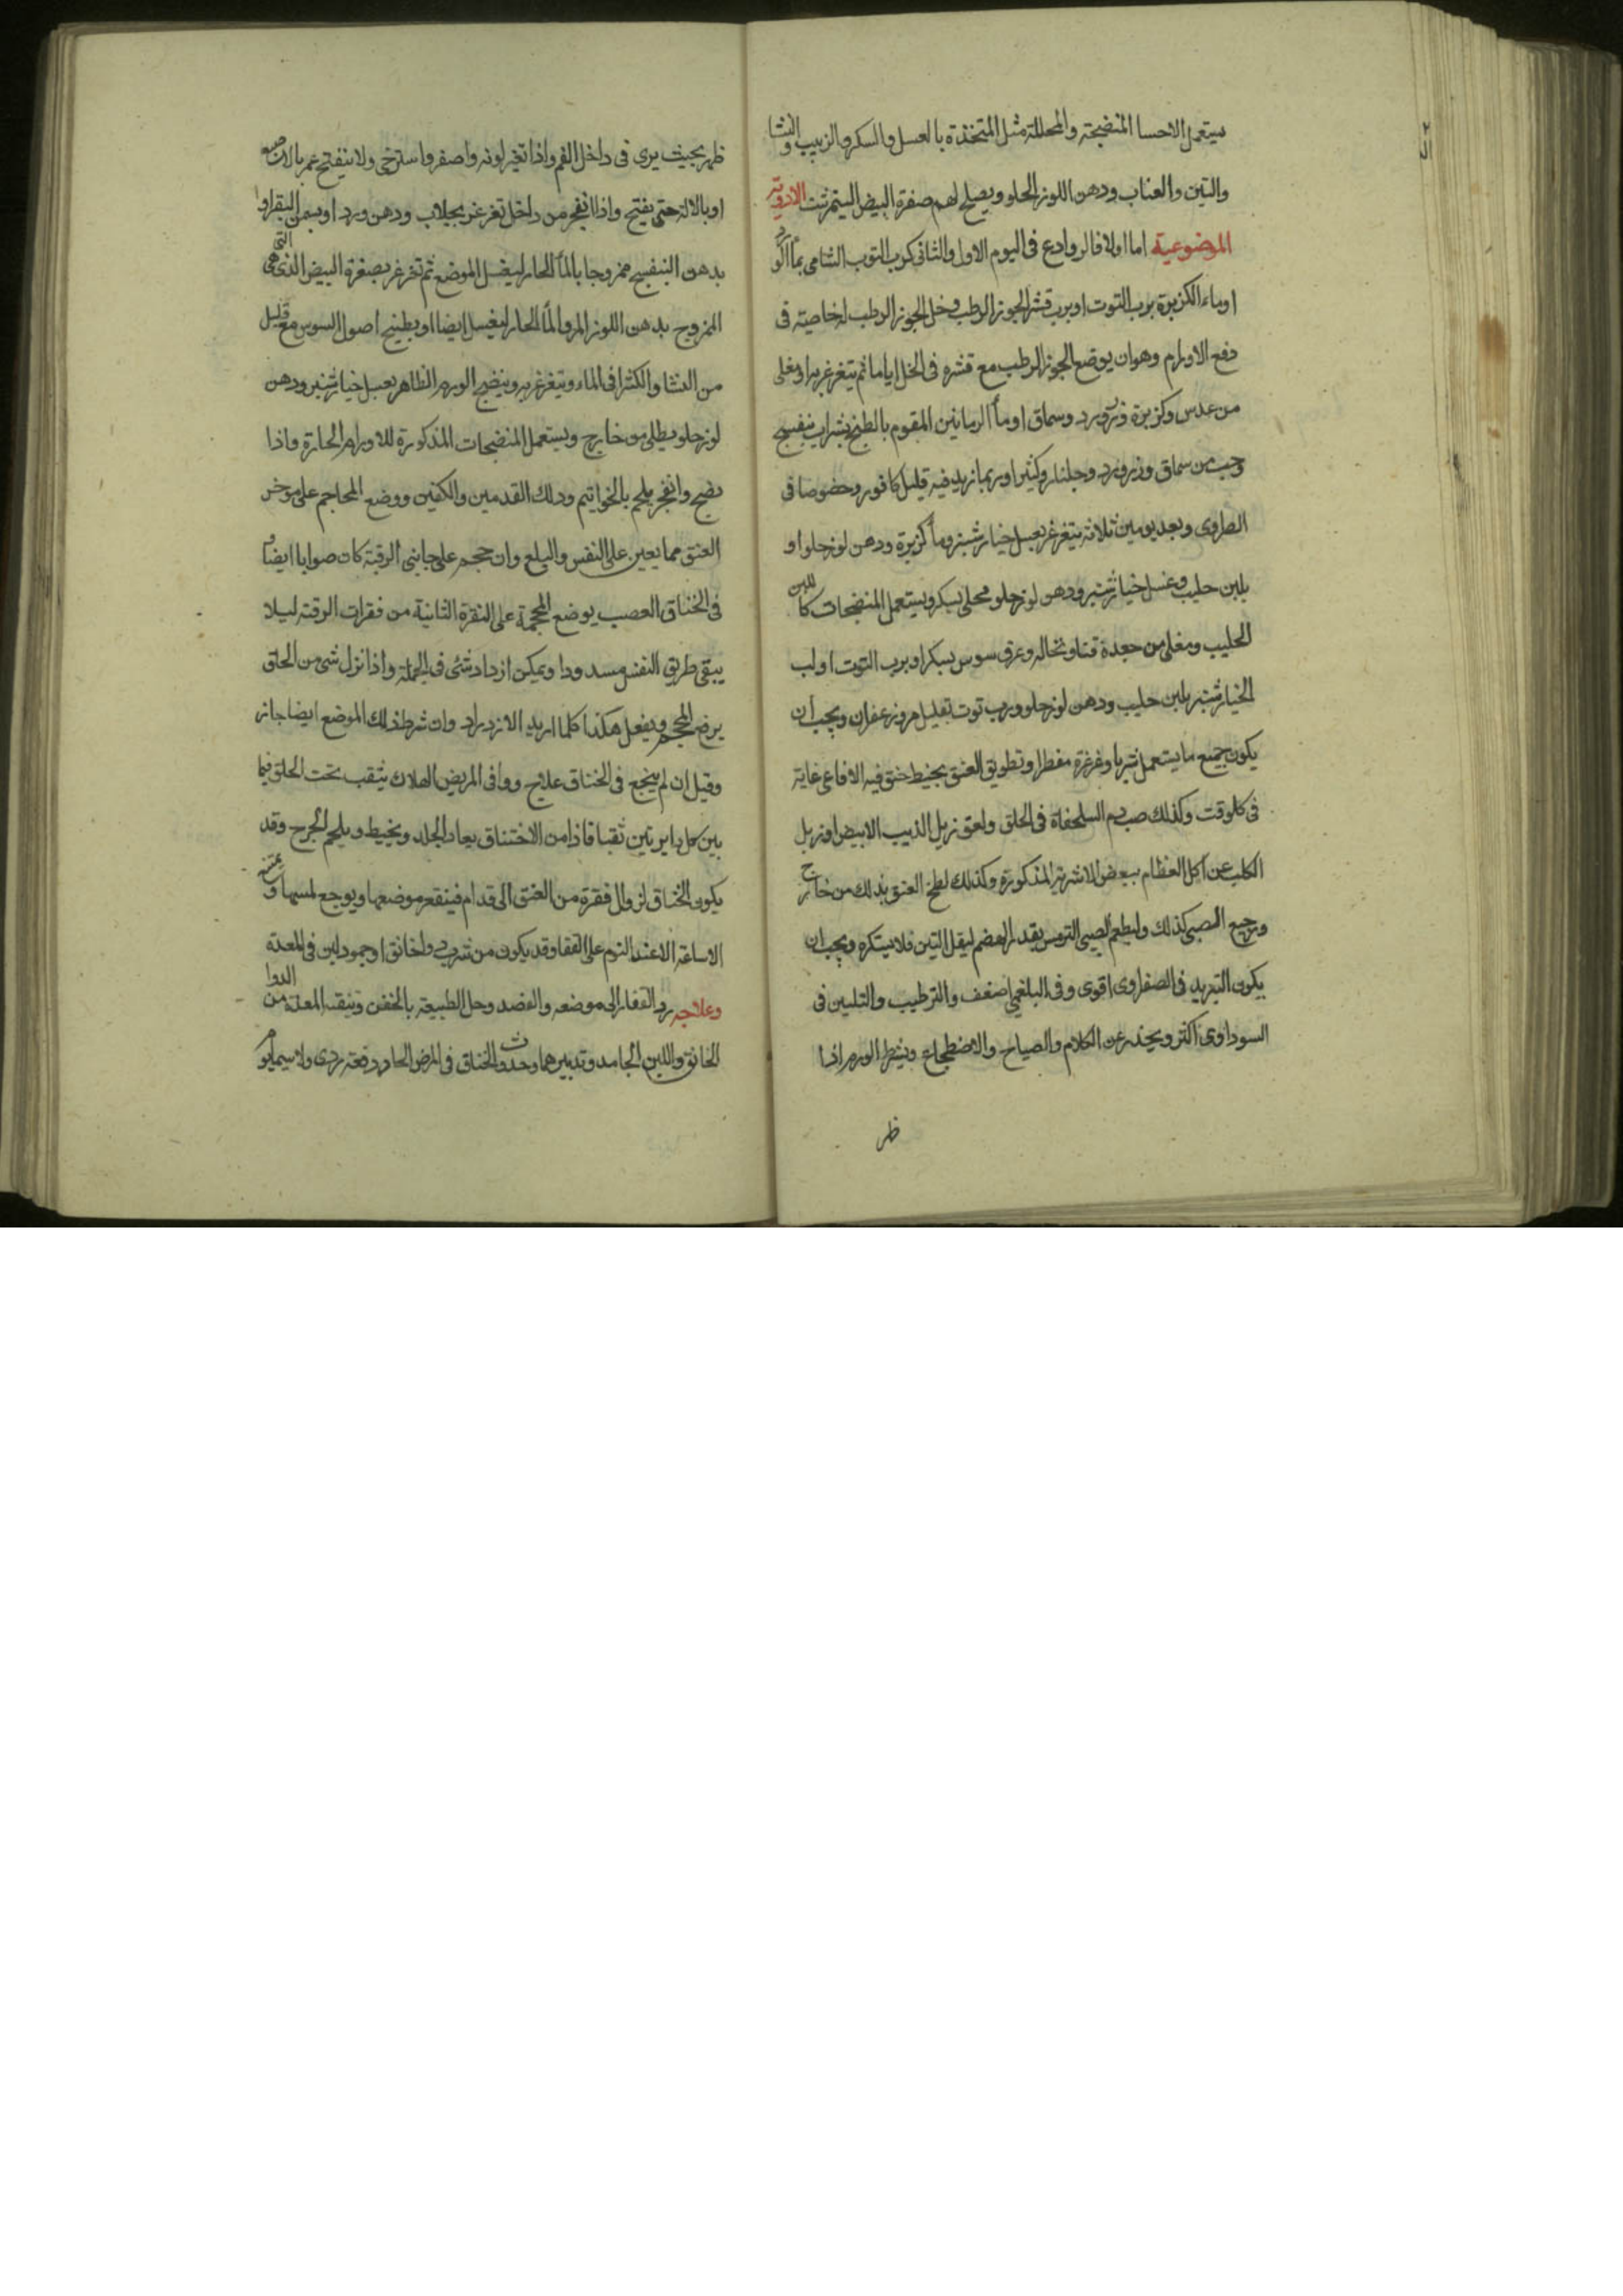 يستعمل الاحسا المنضجة والمحللة مثل المتخذة بالعسل والسكر والزبيب والنشا
والتين والعناب ودهن اللوز الحلو ويصلح لهم صفرة البيض النيمرشت الادوية
الموضوعية اما اولا فالروادع فى اليوم الاول والثانى كرب التوت الشامى بماء الورد
او ماء الكزبرة برب التوت او برب قشر الجوز الرطب وخل الجوز الرطب له خاصية فى
دفع الاورام وهو ان يوضع الجوز الرطب مع قشره فى الخل اياما ثم يتغرغر به او مغلى
من عدس وكزبرة وزرورد وسماق او ماء الرمانين المقوم بالطبخ بشراب بنفسج
وحب من سماق وزرورد وجلنار وكثيرا وربما زيد فيه قليل كافور وخصوصا فى
الصفراوى وبعد يومين ثلاثة يتغرغر بعسل خيارشنبر وماء كزبرة ودهن لوز حلو او
بلبن حليب وعسل خيارشنبر ودهن لوز حلو محلى بسكر ويستعمل المنضجات كاللبن
الحليب ومغلى من جعدة قنا ونخالة وعرق سوس بسكر او برب التوت او لب
الخيارشنبر بلبن حليب ودهن لوز حلو ورب توت بقليل مر وزعفران ويجب ان
يكون جميع ما يستعمل شربا وغرغرة مفطرا وتطويق العنق بخيط خنق فيه الافاعى غاية
فى كل وقت وكذلك صب دم السلحفاة فى الحلق ولعق زبل الذيب الابيض او زبل
الكلب عن اكل العظام ببعض الاشربة المذكورة وكذلك لطخ العنق بذلك من خارج
ورجيع الصبى كذلك وليطعم الصبى الترمس بقدر الهضم ليقل التين فلا يستكره ويجب ان
يكون التبريد فى الصفراوى اقوى وفى البلغمى اضعف والترطيب والتليين فى
السوداوى اكثر ويحذر عن الكلام والصياح والاضطجاع وينتظر الورم اذا
ظهر
ظهر بحيث يرى فى داخل الفم واذا تغير لونه واصفر واسترخى ولا ينفتح غمز بالاصبع
او بالالة حتى يفتح واذا انفجر من داخل تغرغر بجلاب ودهن ورد او بسمن البقر او
بدهن البنفسج ممزوجا بالماء الحار ليغسل الموضع ثم تغرغر بصفرة البيض الذى هى التى
الممزوج بدهن اللوز المر والماء الحار ليغسل ايضا او بطبيخ اصول السوس مع قليل
من النشا والكثيرا فى الماء ويتغرغر به وينضج الورم الظاهر بعسل خيارشنبر ودهن
لوز حلو يطلى من خارج ويستعمل المنضجات المذكورة للاورام الحارة واذا
نضج وانفجر يلحم بالخواتيم ودلك القدمين والكفين ووضع المحاجم على موخر
العنق مما يعين على النفس والبلع وان حجم على جانبى الرقبة كان صوابا ايضا و
فى الخناق العصب يوضع المحجمة على النقرة الثانية من فقرات الرقبة ليلا
يبقى طريق النفس مسدودا ويمكن ازدراد شئ فى الجملة واذا نزل شئ من الحلق
يرفع المحجم ويفعل هكذا كلما اريد الازدراد وان شرط ذلك الموضع ايضا جاز
وقيل ان لم ينجع فى الخناق علاج ووافى المريض الهلاك يثقب تحت الحلق فيما
بين كل دايرتين ثقبا فاذا من الاختناق يعاد الجلد ويخيط ويلحم الجرح وقد
يكون الخناق لزوال فقرة من العنق الى قدام فينقعر موضعها ويوجع لمسها و
الاساغة الا عند النوم على القفا وقد يكون من شرب دوا خانق او جمود لبن فى المعدة
وعلاجه رد الفقار الى موضعه والفصد وحل الطبيعة بالحقن وتنقية المعدة من الدوا
الخانق واللبن الجامد وتدبيرهما وحدوث الخناق فى المرض الحاد دفعة ردى ولا سيما يوم